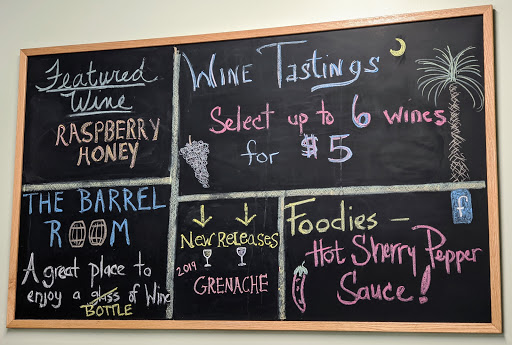 Featured
Wine
RASPBERRY
HONEY
WINE TASTINGS
Select up to 6 wines
for $5
f
THE BARREL
ROOM
A great place to
enjoy a glass of Wine
BOTTLE
New Releases
2019
GRENACHE
Foodies –
Hot Sherry Pepper
Sauce!